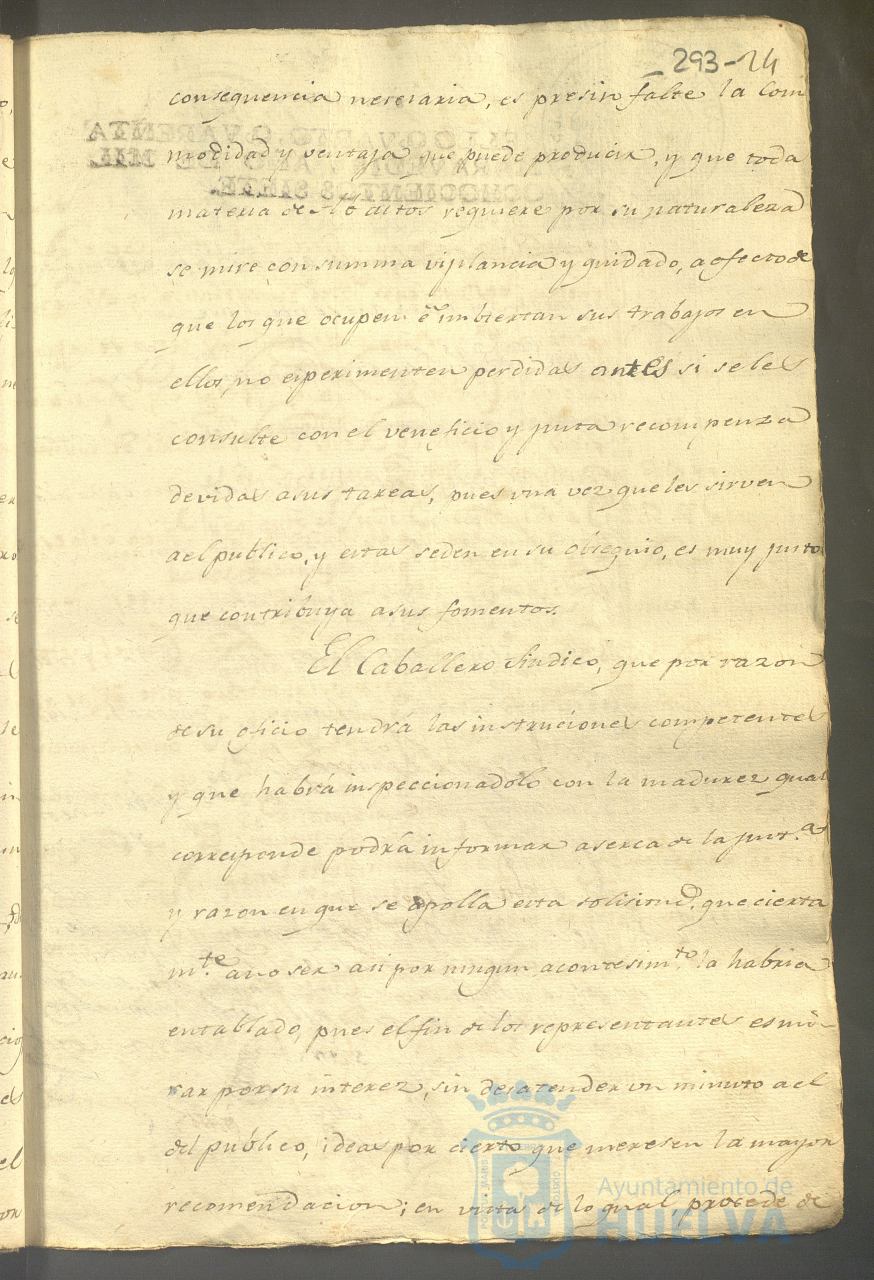 293-24
consequencia nereraria, es presin falte la Com
modidad y ventaja que puede producir, y que toda
materia de altos requiere por su naturaleza
se mire con summa vigilancia y quidado, a efecto de
que los que ocupen é imbiertan sus trabajos en
ellos, no experimenten perdidas antes si se les
consulte con el veneficio y justa recompenza
devidas a sus tareas, pues una vez que les sirven
a el publico, y estas seden en su obsequio, es muy justo
que contribuya a sus fomentos.
El Caballero Sindico, que por razon
de su oficio tendrá las instruciones competentes
y que habrá inspeccionadolo con la madurez qual
corresponde podrá informar aserca de la just.ª
y razon en que se apolla esta solisitud, que cierta
m.te a no ser asi por ningun acontesim.to la habria
entablado, pues el fin de los representantes es mi-
rar por su interez, sin desatender un minuto a el
del público, ideas por cierto que meresen la mayor
recomendacion; en vista de lo qual, procede de
Ayuntamiento de
HUELVA